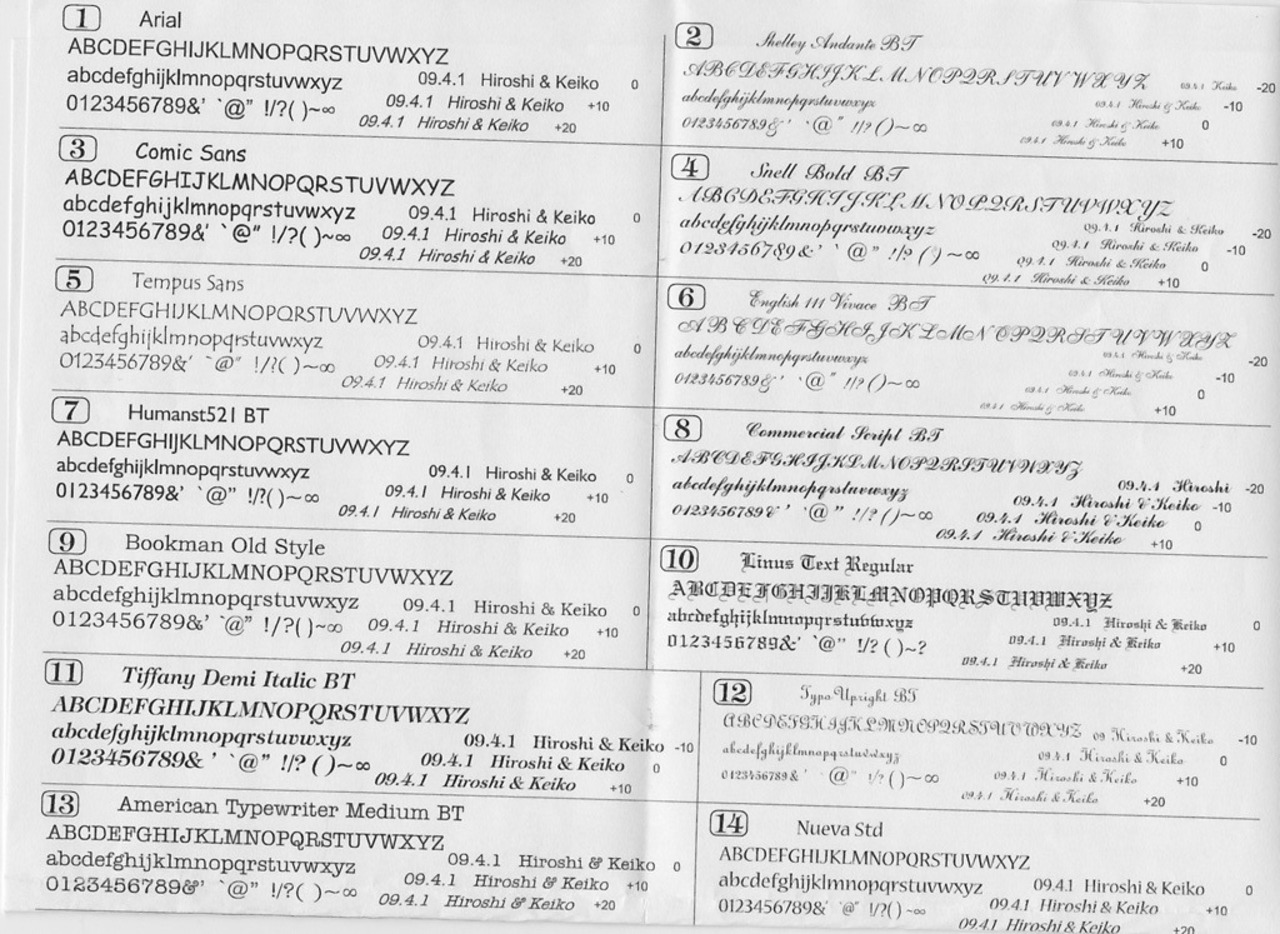 1 Arial
ABCDEFGHIJKLMNOPQRSTUVWXYZ
abcdefghijklmnopqrstuvwxyz 09.4.1 Hiroshi & Keiko 0
0123456789&' `@" !/?( )~∞ 09.4.1 Hiroshi & Keiko +10
09.4.1 Hiroshi & Keiko +20
2 Shelley Andante BT
ABCDEFGHIJKLMNOPQRSTUVWXYZ 09.4.1 Keiko -20
abcdefghijklmnopqrstuvwxyz 09.4.1 Hiroshi & Keiko -10
0123456789&' `@" !/?( )~∞ 09.4.1 Hiroshi & Keiko 0
09.4.1 Hiroshi & Keiko +10
3 Comic Sans
ABCDEFGHIJKLMNOPQRSTUVWXYZ
abcdefghijklmnopqrstuvwxyz 09.4.1 Hiroshi & Keiko 0
0123456789&' `@" !/?( )~∞ 09.4.1 Hiroshi & Keiko +10
09.4.1 Hiroshi & Keiko +20
4 Snell Bold BT
ABCDEFGHIJKLMNOPQRSTUVWXYZ
abcdefghijklmnopqrstuvwxyz 09.4.1 Hiroshi & Keiko -20
0123456789&' `@" !/?( )~∞ 09.4.1 Hiroshi & Keiko -10
09.4.1 Hiroshi & Keiko 0
09.4.1 Hiroshi & Keiko +10
5 Tempus Sans
ABCDEFGHIJKLMNOPQRSTUVWXYZ
abcdefghijklmnopqrstuvwxyz 09.4.1 Hiroshi & Keiko 0
0123456789&' `@" !/?( )~∞ 09.4.1 Hiroshi & Keiko +10
09.4.1 Hiroshi & Keiko +20
6 English 111 Vivace BT
ABCDEFGHIJKLMNOPQRSTUVWXYZ
abcdefghijklmnopqrstuvwxyz 09.4.1 Hiroshi & Keiko -20
0123456789&' `@" !/?( )~∞ 09.4.1 Hiroshi & Keiko -10
09.4.1 Hiroshi & Keiko 0
09.4.1 Hiroshi & Keiko +10
7 Humanst521 BT
ABCDEFGHIJKLMNOPQRSTUVWXYZ
abcdefghijklmnopqrstuvwxyz 09.4.1 Hiroshi & Keiko 0
0123456789&' `@" !/?( )~∞ 09.4.1 Hiroshi & Keiko +10
09.4.1 Hiroshi & Keiko +20
8 Commercial Script BT
ABCDEFGHIJKLMNOPQRSTUVWXYZ
abcdefghijklmnopqrstuvwxyz 09.4.1 Hiroshi -20
0123456789&' `@" !/?( )~∞ 09.4.1 Hiroshi & Keiko -10
09.4.1 Hiroshi & Keiko 0
09.4.1 Hiroshi & Keiko +10
9 Bookman Old Style
ABCDEFGHIJKLMNOPQRSTUVWXYZ
abcdefghijklmnopqrstuvwxyz 09.4.1 Hiroshi & Keiko 0
0123456789&' `@" !/?( )~∞ 09.4.1 Hiroshi & Keiko +10
09.4.1 Hiroshi & Keiko +20
10 Linus Text Regular
ABCDEFGHIJKLMNOPQRSTUVWXYZ
abcdefghijklmnopqrstuvwxyz 09.4.1 Hiroshi & Keiko 0
0123456789&' `@" !/?( )~? 09.4.1 Hiroshi & Keiko +10
09.4.1 Hiroshi & Keiko +20
11 Tiffany Demi Italic BT
ABCDEFGHIJKLMNOPQRSTUVWXYZ
abcdefghijklmnopqrstuvwxyz 09.4.1 Hiroshi & Keiko -10
0123456789&' `@" !/?( )~∞ 09.4.1 Hiroshi & Keiko 0
09.4.1 Hiroshi & Keiko +10
12 Typo Upright BT
ABCDEFGHIJKLMNOPQRSTUVWXYZ 09 Hiroshi & Keiko -10
abcdefghijklmnopqrstuvwxyz 09.4.1 Hiroshi & Keiko 0
0123456789&' `@" !/?( )~∞ 09.4.1 Hiroshi & Keiko +10
09.4.1 Hiroshi & Keiko +20
13 American Typewriter Medium BT
ABCDEFGHIJKLMNOPQRSTUVWXYZ
abcdefghijklmnopqrstuvwxyz 09.4.1 Hiroshi & Keiko 0
0123456789&' `@" !/?( )~∞ 09.4.1 Hiroshi & Keiko +10
09.4.1 Hiroshi & Keiko +20
14 Nueva Std
ABCDEFGHIJKLMNOPQRSTUVWXYZ
abcdefghijklmnopqrstuvwxyz 09.4.1 Hiroshi & Keiko 0
0123456789&' `@" !/?( )~∞ 09.4.1 Hiroshi & Keiko +10
09.4.1 Hiroshi & Keiko +20